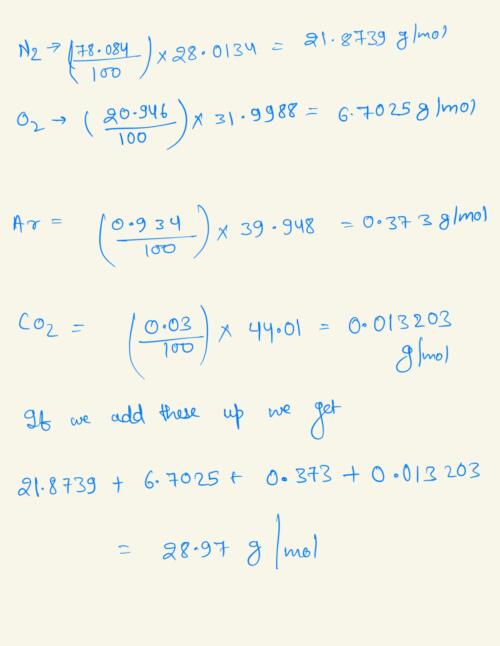 N2 → (78.084/100) × 28.0134 = 21.8739 g/mol
O2 → (20.946/100) × 31.9988 = 6.7025 g/mol
Ar = (0.934/100) × 39.948 = 0.373 g/mol
CO2 = (0.03/100) × 44.01 = 0.013203
g/mol
If we add these up we get
21.8739 + 6.7025 + 0.373 + 0.013203
= 28.97 g/mol